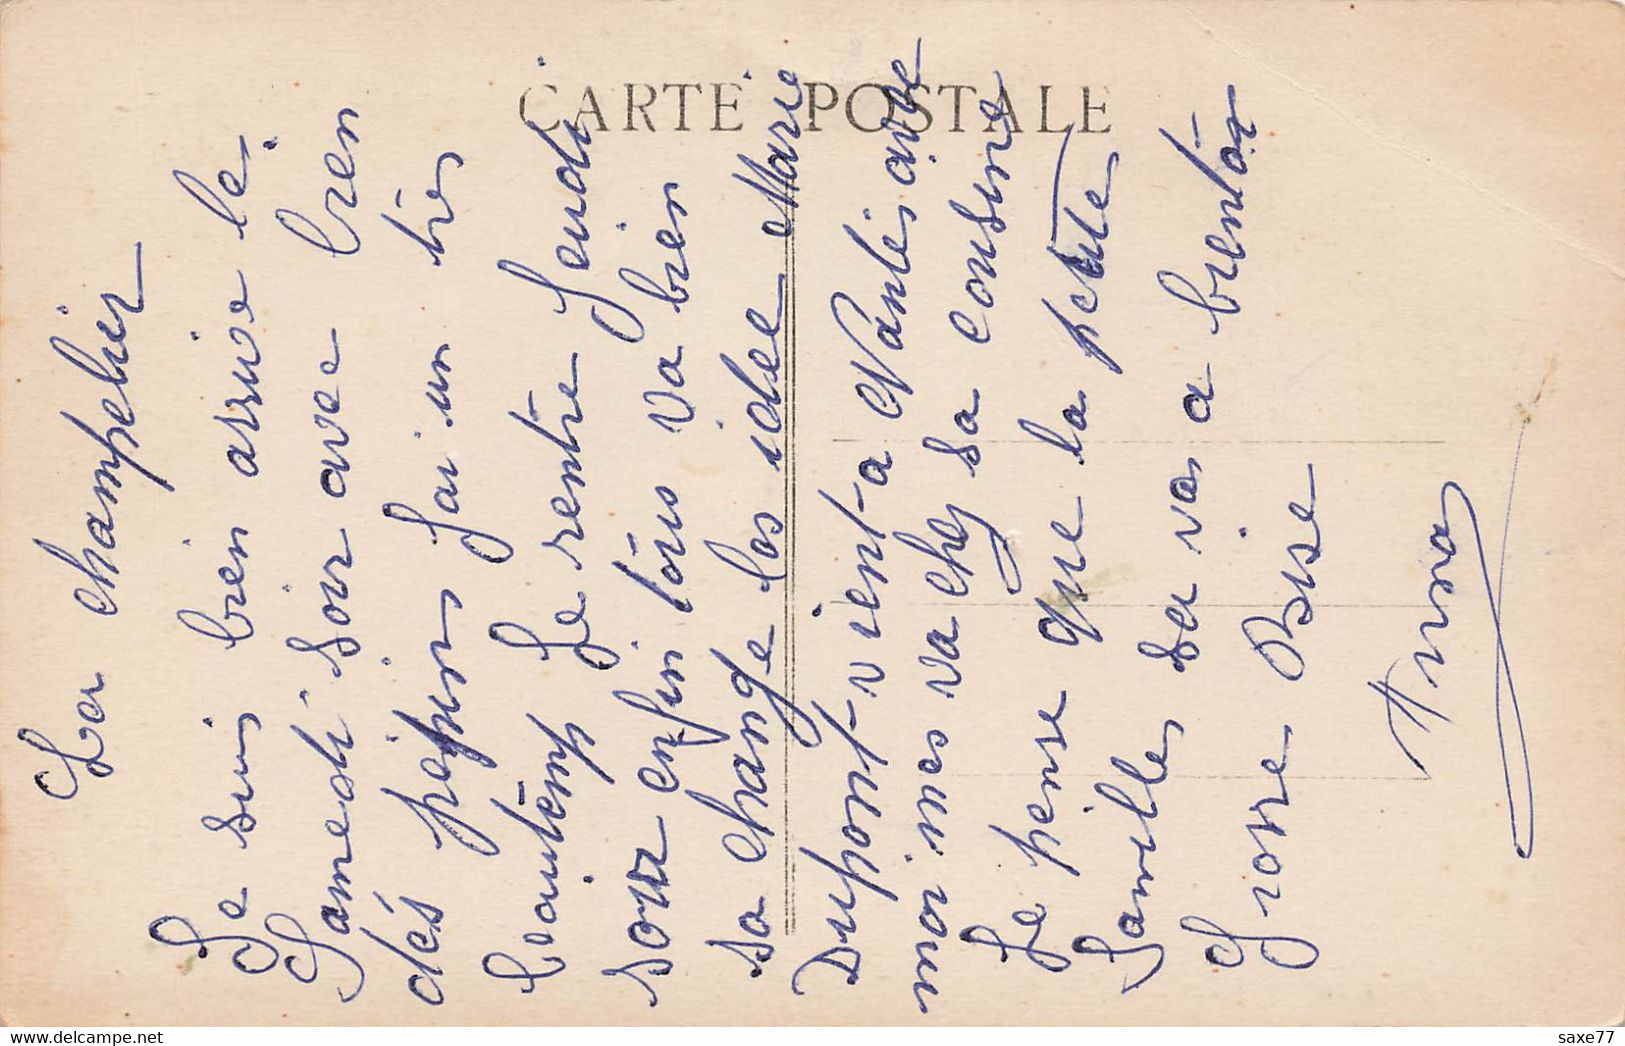 La champelier
Je suis bien arrive le
Samedi soir avec bien
dés pepins J'ai un très
beautemp Je rentre Jeudi
soir enfin tous va bien
sa change les idee Marie
Dupont vient a Nantes avee
moi mes va chez sa cousine
Je pense que la petite
Jamilles sa va a bientôt
Grosse Bise
CARTE POSTALE
saxe77